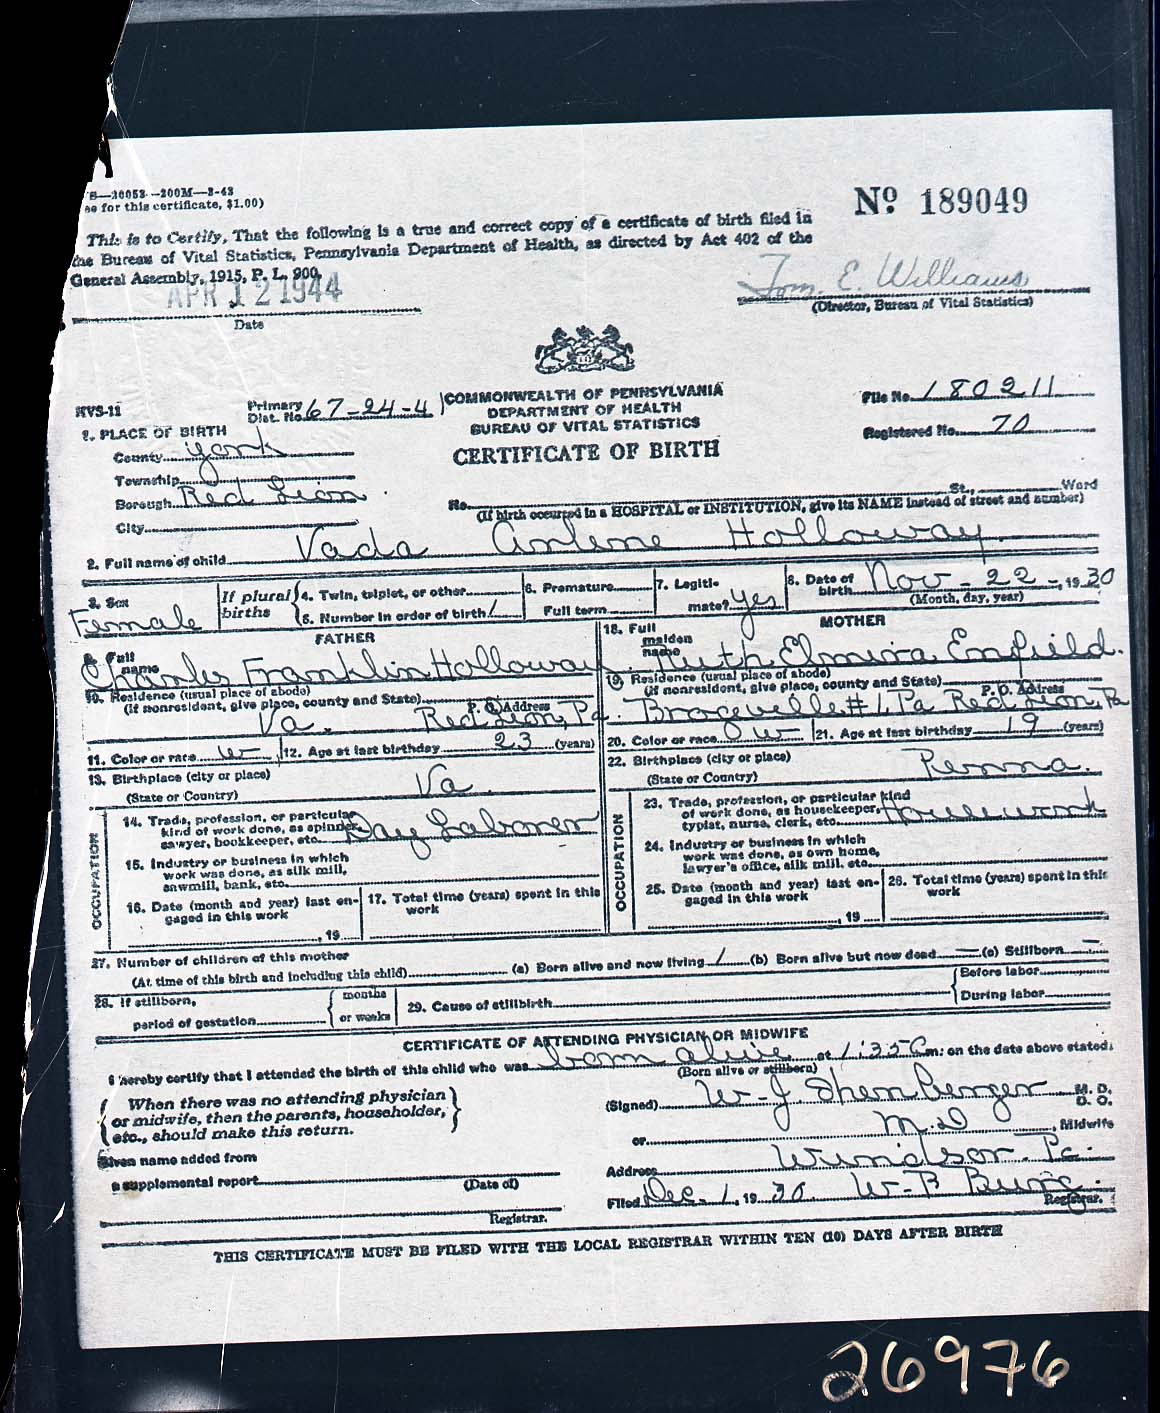 S—20053—200M—3-43
ee for this certificate, $1.00)
Nº 189049
This is to Certify, That the following is a true and correct copy of a certificate of birth filed in
the Bureau of Vital Statistics, Pennsylvania Department of Health, as directed by Act 402 of the
General Assembly, 1915, P. L. 900.
APR 12 1944
Date
Tom. E. Williams
(Director, Bureau of Vital Statistics)
HVS-11
Primary Dist. No. 67-24-4
COMMONWEALTH OF PENNSYLVANIA
DEPARTMENT OF HEALTH
BUREAU OF VITAL STATISTICS
CERTIFICATE OF BIRTH
File No. 180211
Registered No. 70
1. PLACE OF BIRTH
County York
Township
Borough Red Lion
City
No. St., Ward
(If birth occurred in a HOSPITAL or INSTITUTION, give its NAME instead of street and number)
2. Full name of child Vada Arlene Holloway
3. Sex Female
If plural births
4. Twin, triplet, or other
5. Number in order of birth 1
6. Premature
Full term
7. Legitimate? Yes
8. Date of birth Nov-22-, 1930
(Month, day, year)
FATHER
9. Full name Charles Franklin Holloway
10. Residence (usual place of abode)
(If nonresident, give place, county and State)
P. O. Address
Va. Red Lion, Pa.
11. Color or race W 12. Age at last birthday 23 (years)
13. Birthplace (city or place)
(State or Country) Va.
OCCUPATION
14. Trade, profession, or particular
kind of work done, as spinner,
sawyer, bookkeeper, etc. Day Laborer
15. Industry or business in which
work was done, as silk mill,
sawmill, bank, etc.
16. Date (month and year) last en-
gaged in this work
, 19
17. Total time (years) spent in this
work
MOTHER
18. Full maiden name Ruth Elmira Enfield.
19. Residence (usual place of abode)
(If nonresident, give place, county and State)
P. O. Address
Brogueville #1, Pa Red Lion, Pa
20. Color or race W 21. Age at last birthday 19 (years)
22. Birthplace (city or place)
(State or Country) Penna.
OCCUPATION
23. Trade, profession, or particular kind
of work done, as housekeeper,
typist, nurse, clerk, etc. Housework
24. Industry or business in which
work was done, as own home,
lawyer's office, silk mill, etc.
25. Date (month and year) last en-
gaged in this work
, 19
26. Total time (years) spent in this
work
27. Number of children of this mother
(At time of this birth and including this child) (a) Born alive and now living 1 (b) Born alive but now dead — (c) Stillborn —
28. If stillborn,
period of gestation
months
or weeks
29. Cause of stillbirth
Before labor
During labor
CERTIFICATE OF ATTENDING PHYSICIAN OR MIDWIFE
I hereby certify that I attended the birth of this child who was born alive at 1:35 a m. on the date above stated.
(Born alive or stillborn)
When there was no attending physician
or midwife, then the parents, householder,
etc., should make this return.
(Signed) W-J. Shenberger M. D.
D. O.
or M.D , Midwife
Given name added from
a supplemental report
(Date of)
Registrar.
Address Windsor. Pa.
Filed Dec-1, 1930 W-B
Registrar.
THIS CERTIFICATE MUST BE FILED WITH THE LOCAL REGISTRAR WITHIN TEN (10) DAYS AFTER BIRTH
26976